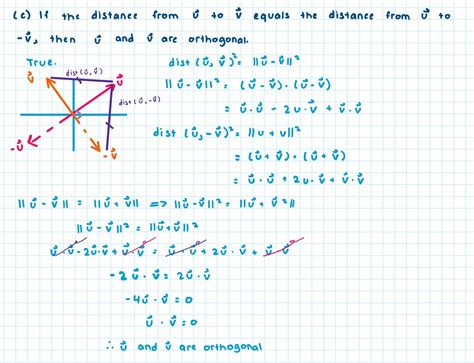 (c) If the distance from u⃗ to v⃗ equals the distance from u⃗ to
-v⃗, then u⃗ and v⃗ are orthogonal.
True.
v⃗
dist(u⃗, v⃗)
u⃗
dist(u⃗, -v⃗)
-u⃗
-v⃗
dist (u⃗, v⃗)² = ||u⃗ - v⃗||²
||u⃗ - v⃗||² = (u⃗ - v⃗) · (u⃗ - v⃗)
= u⃗ · u⃗ - 2u · v⃗ + v⃗ · v⃗
dist (u⃗, -v⃗)² = ||u + v||²
= (u⃗ + v⃗) · (u⃗ + v⃗)
= u⃗ · u⃗ + 2u · v⃗ + v⃗ · v⃗
||u⃗ - v⃗|| = ||u⃗ + v⃗|| => ||u⃗ - v⃗||² = ||u⃗ + v⃗²||
||u⃗ - v⃗||² = ||u⃗ + v⃗||²
u⃗ · u⃗ - 2u⃗ · v⃗ + v⃗ · v⃗ = u⃗ · u⃗ + 2u⃗ · v⃗ + v⃗ · v⃗
-2u⃗ · v⃗ = 2u⃗ · v⃗
-4u⃗ · v⃗ = 0
u⃗ · v⃗ = 0
∴ u⃗ and v⃗ are orthogonal